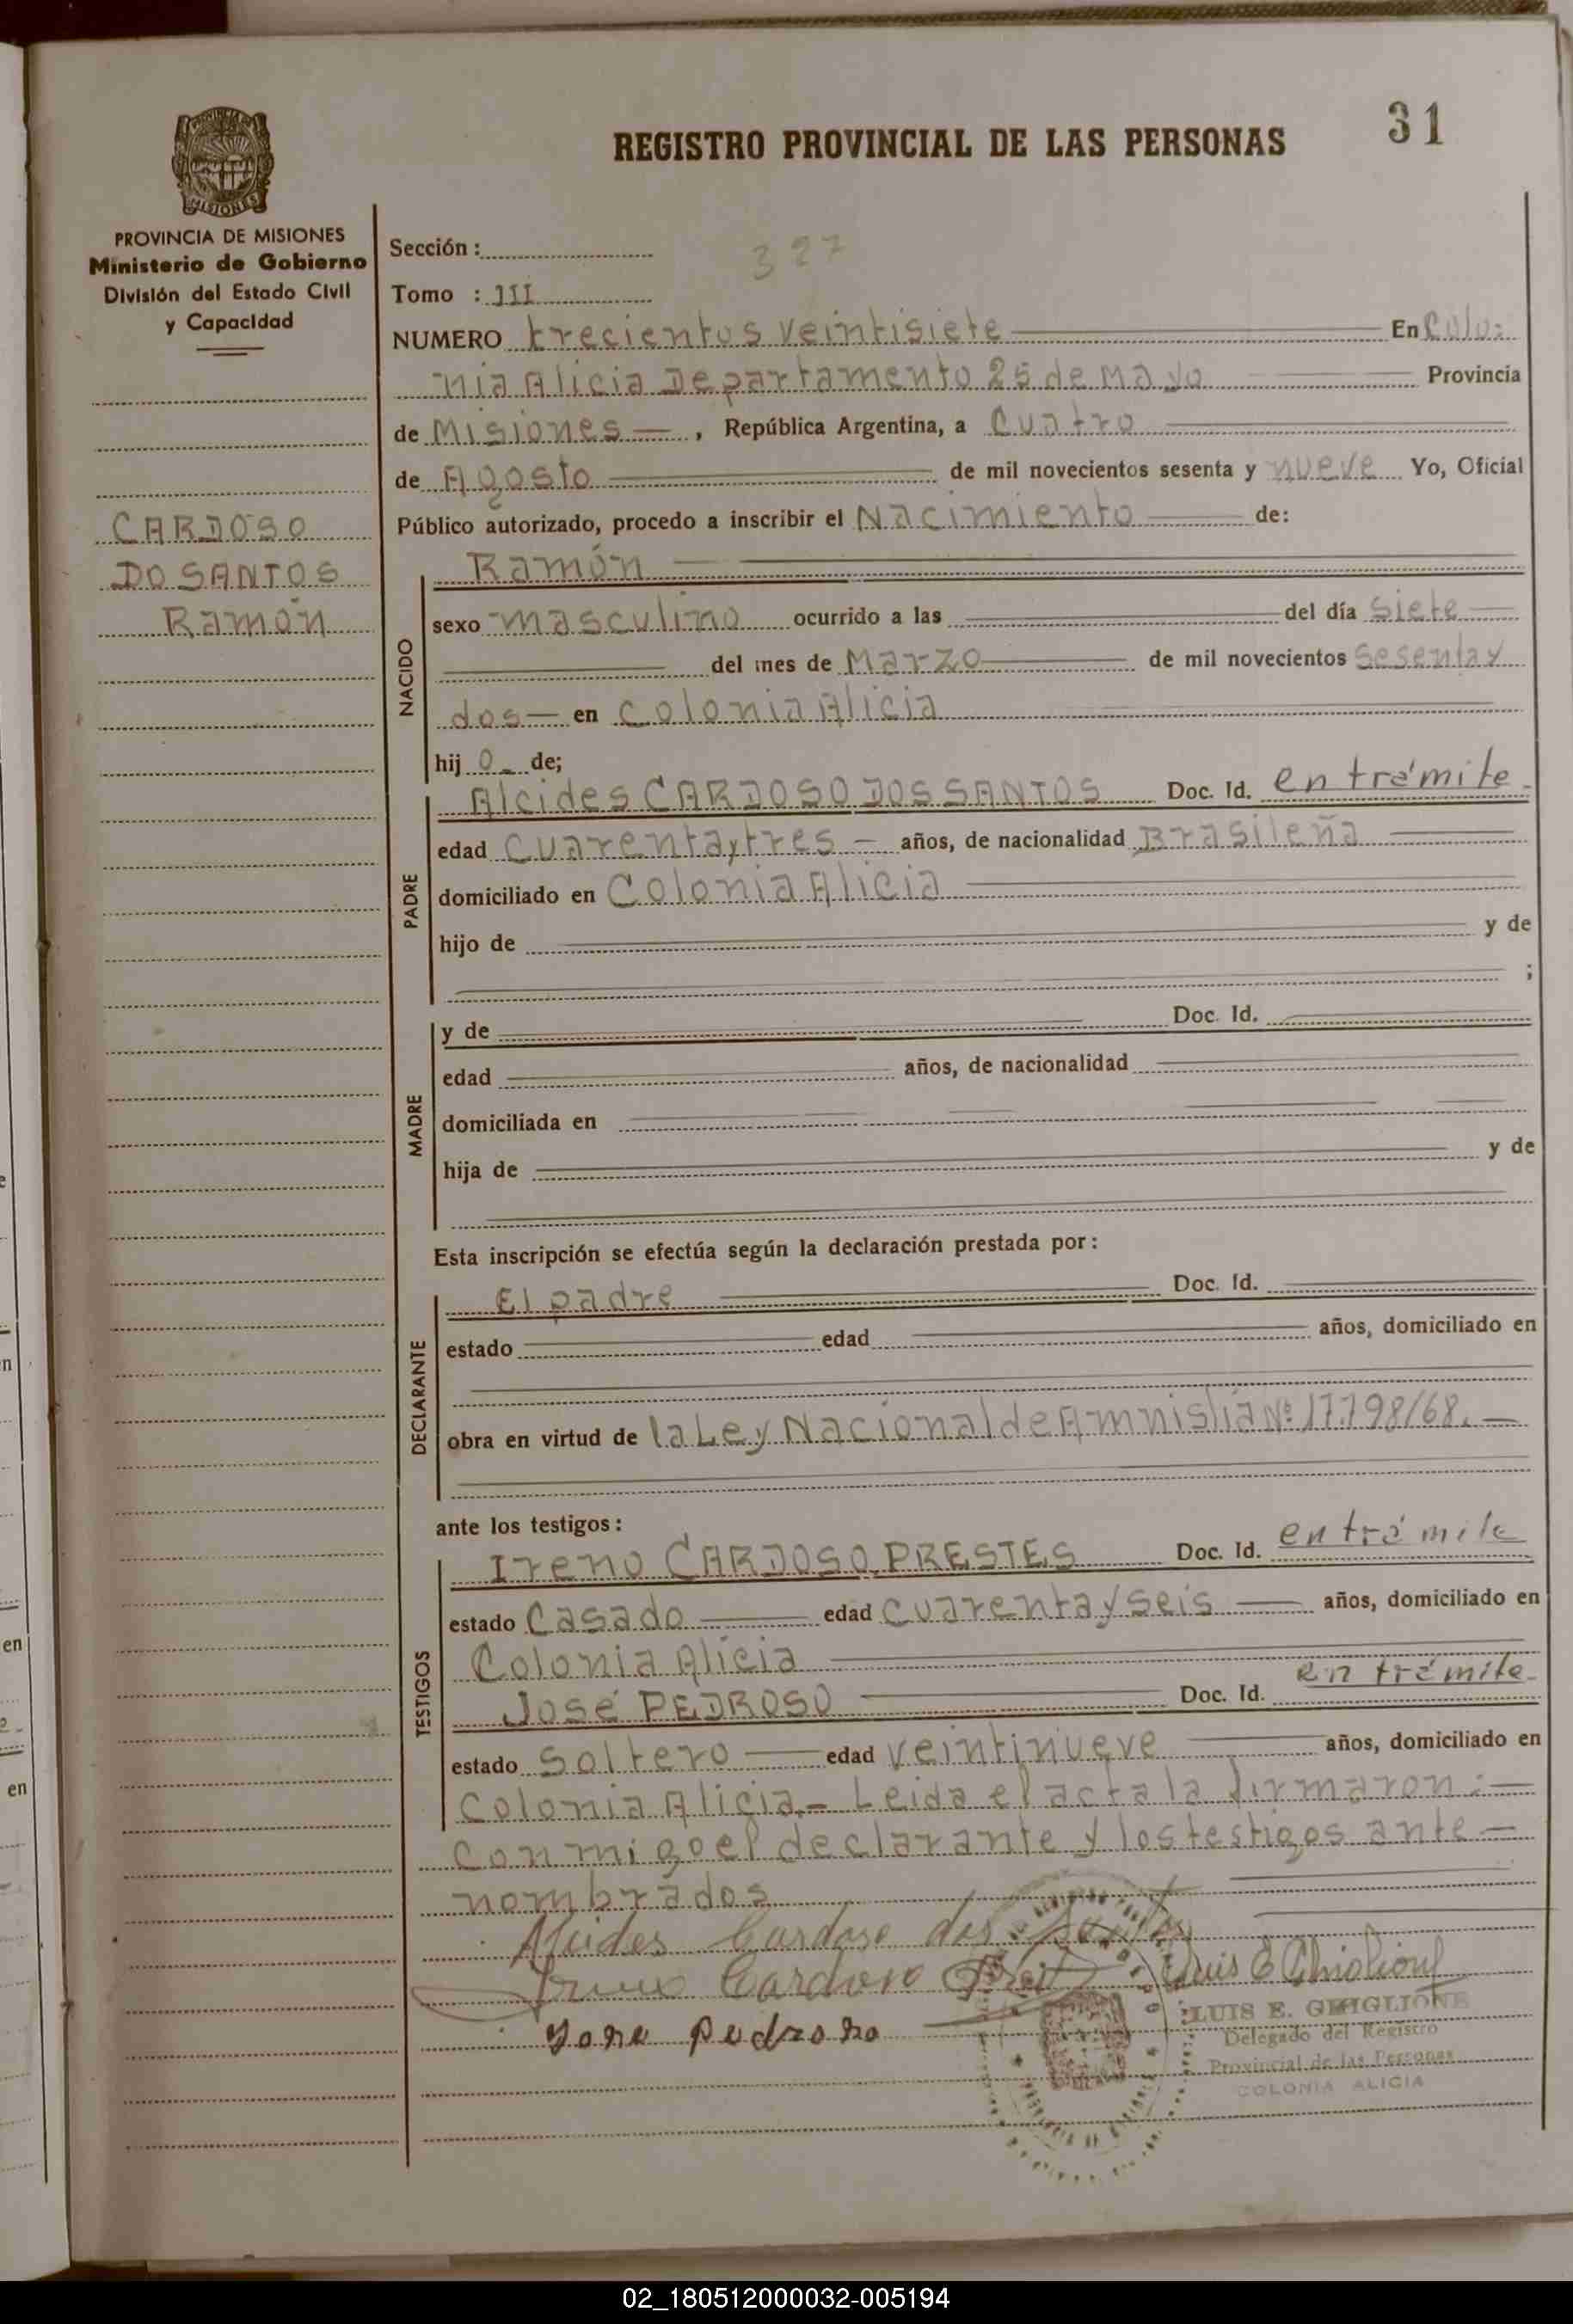 REGISTRO PROVINCIAL DE LAS PERSONAS
31
PROVINCIA DE MISIONES
Ministerio de Gobierno
División del Estado Civil
y Capacidad
CARDOSO
DO SANTOS
Ramón
Sección :
327
Tomo : III
NUMERO trecientos veintisiete En Colo=
nia Alicia Departamento 25 de Mayo Provincia
de Misiones — , República Argentina, a Cuatro
de Agosto de mil novecientos sesenta y nueve Yo, Oficial
Público autorizado, procedo a inscribir el Nacimiento de:
NACIDO
Ramón
sexo masculino ocurrido a las del día siete
del mes de Marzo de mil novecientos sesenta y
dos — en Colonia Alicia
hij o de;
PADRE
Alcides CARDOSO DOS SANTOS Doc. Id. en trámite
edad cuarenta y tres — años, de nacionalidad Brasileña
domiciliado en Colonia Alicia
hijo de y de
;
MADRE
y de Doc. Id.
edad años, de nacionalidad
domiciliada en
hija de y de
Esta inscripción se efectúa según la declaración prestada por:
DECLARANTE
El padre Doc. Id.
estado edad años, domiciliado en
obra en virtud de la Ley Nacional de Amnistía Nº 17.798/68. —
ante los testigos:
TESTIGOS
Ireno CARDOSO PRESTES Doc. Id. en trámite
estado Casado edad cuarenta y seis — años, domiciliado en
Colonia Alicia
José PEDROSO Doc. Id. en trámite
estado Soltero edad veintinueve años, domiciliado en
Colonia Alicia.- Leida el acta la firmaron: —
conmigo el declarante y los testigos ante —
nombrados
Alcides Cardoso dos Santos
Cardoso Luis E Ghiglione
LUIS E. GHIGLIONE
Jose Pedroso
Delegado del Registro
Provincial de las Personas
COLONIA ALICIA
02_180512000032-005194